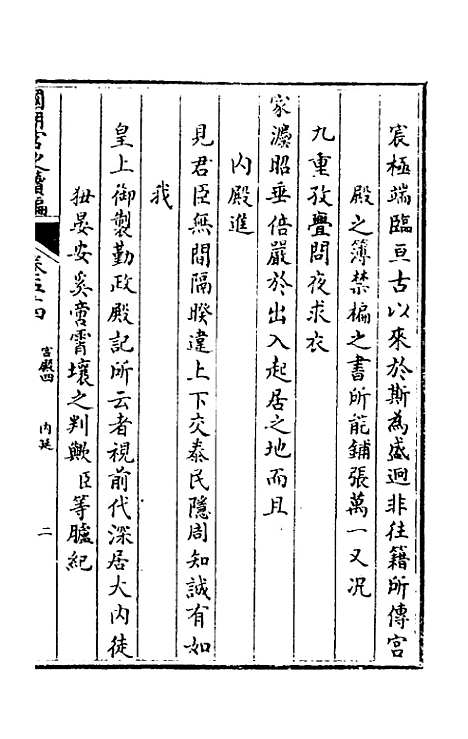 宸極端臨亘古以來於斯為盛迥非往籍所傳宮
殿之簿禁楄之書所能鋪張萬一又況
九重孜亹問夜求衣
家灋昭垂倍嚴於出入起居之地而且
內殿進
見君臣無間隔暌違上下交泰民隱周知誠有如
我
皇上御製勤政殿記所云者視前代深居大內徒
狃晏安奚啻霄壤之判歟臣等臚紀
國朝宮史續編
卷五十四
宮殿四
內廷
二